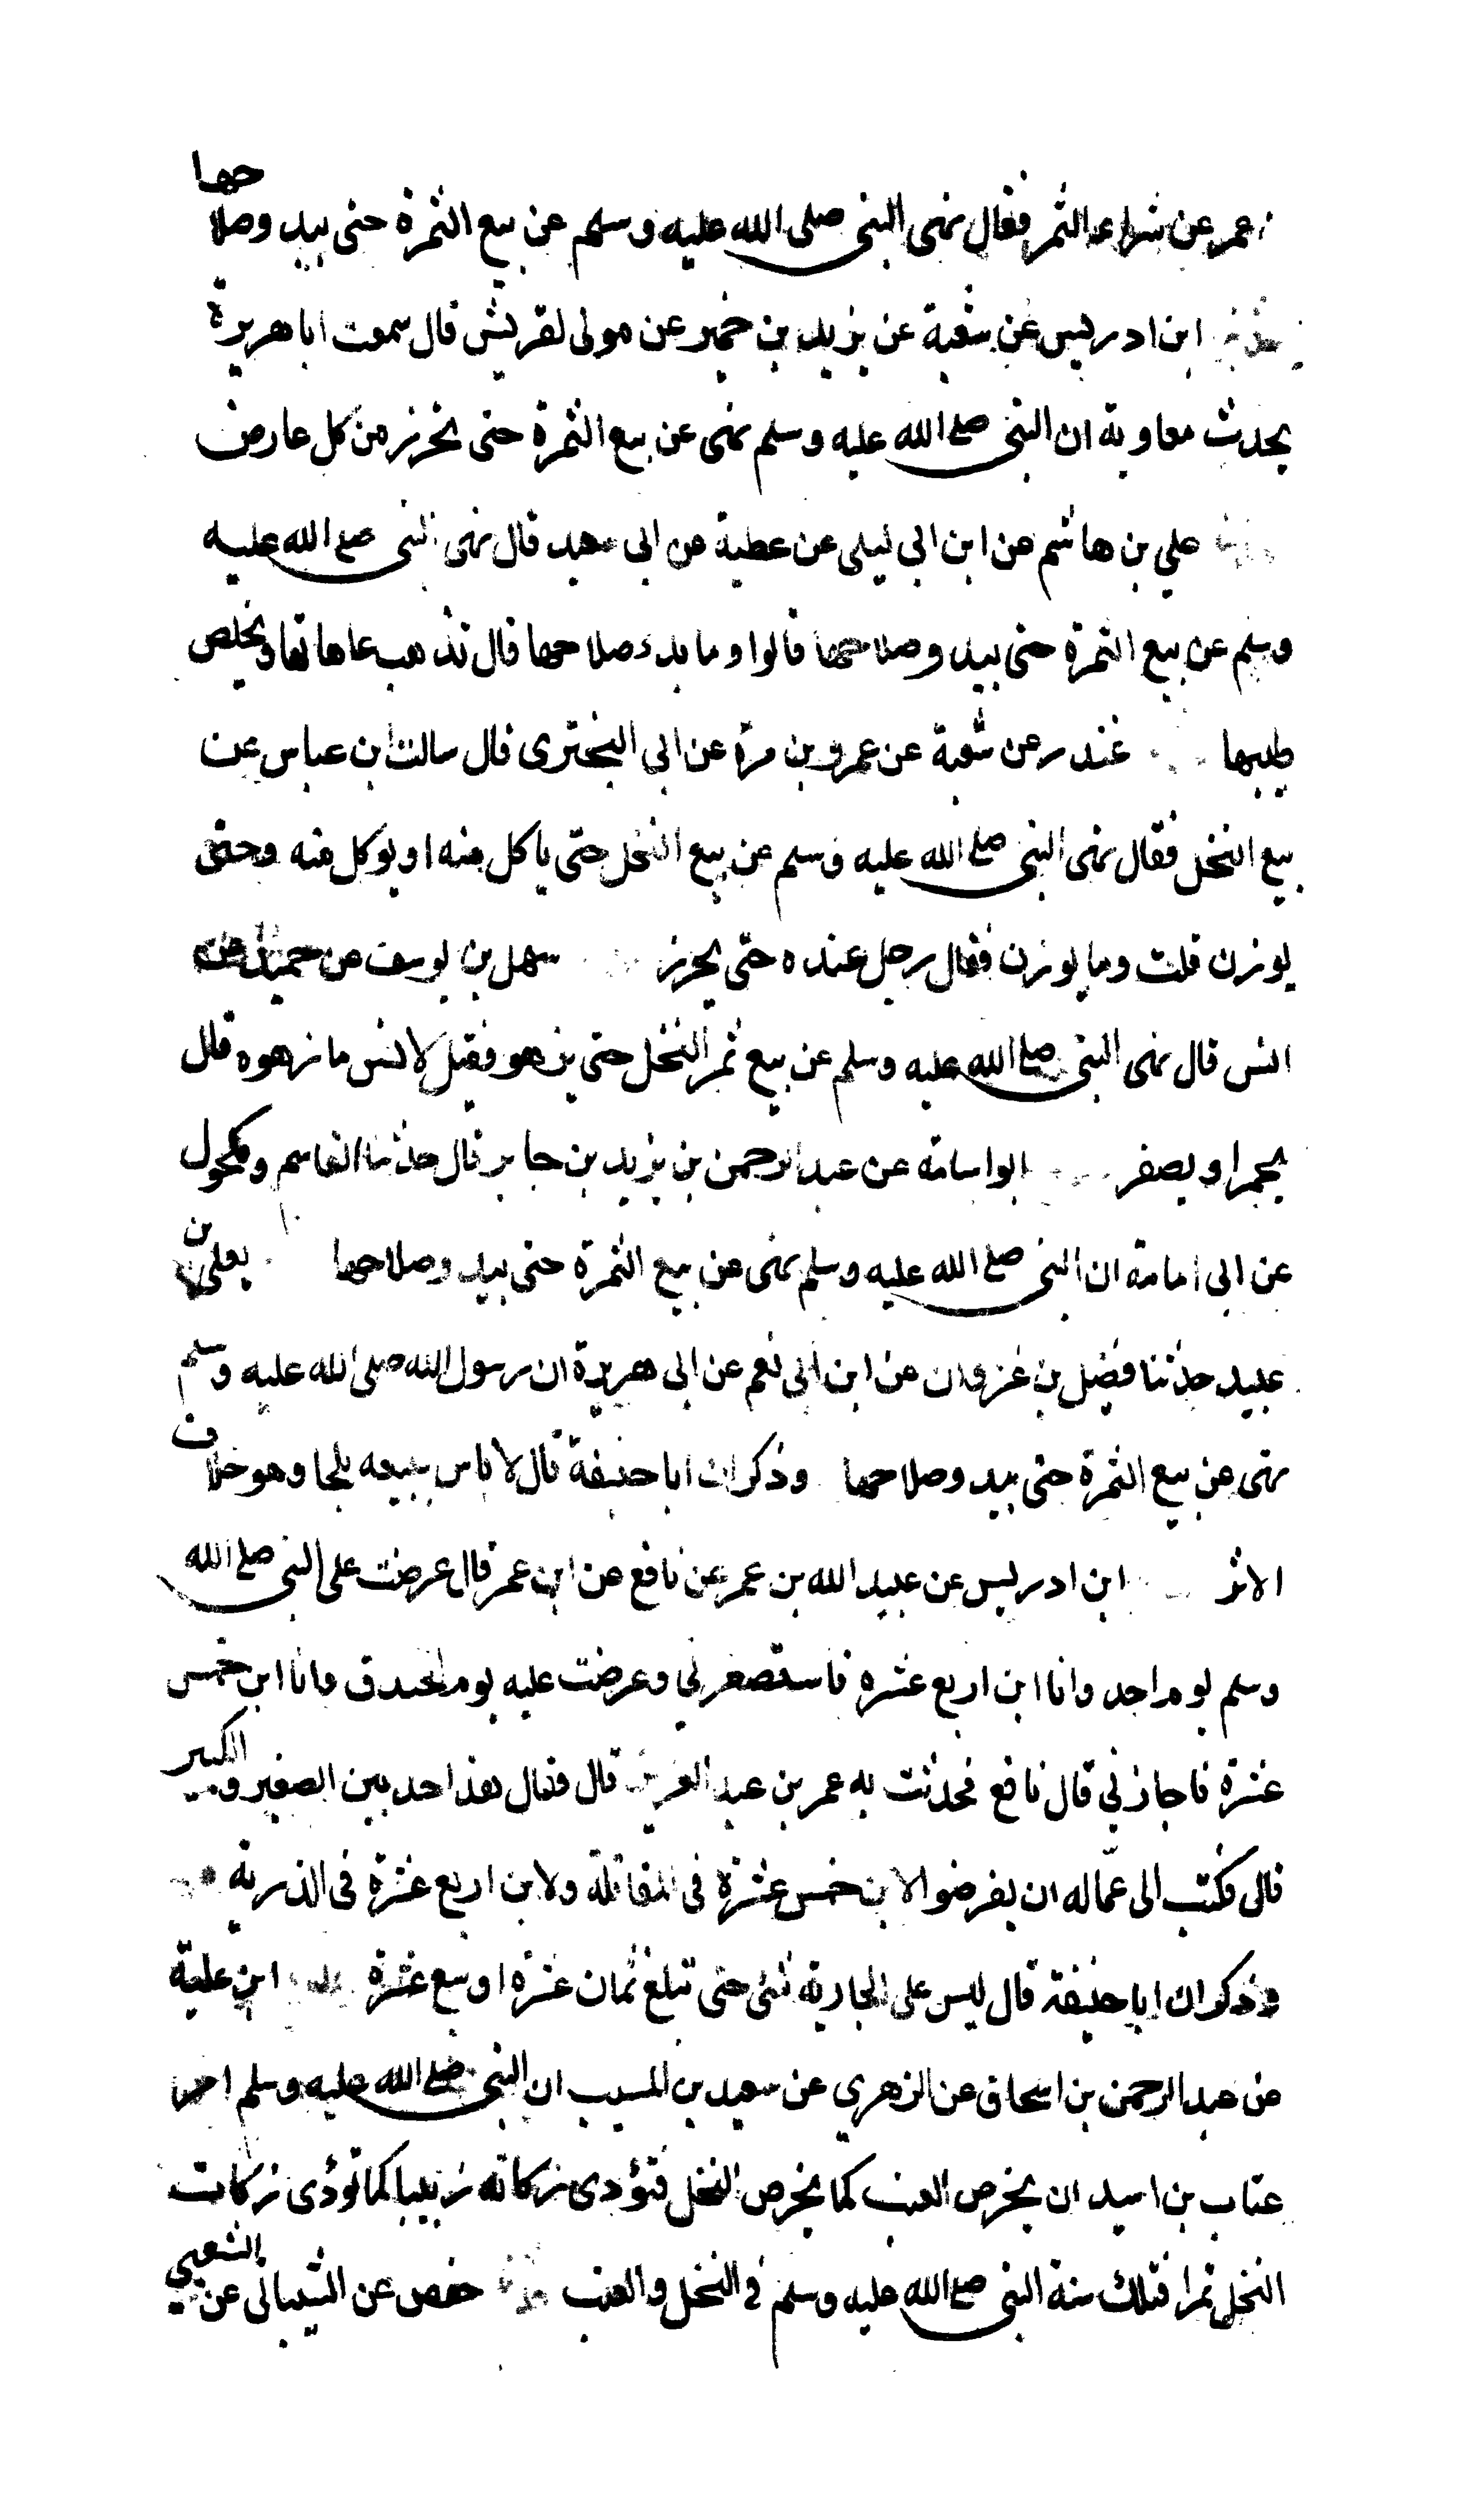 عمر عن شراء الثمر فقال نهى النبي صلى الله عليه وسلم عن بيع الثمرة حتى يبدو صلاحها
ابن ادريس عن شعبة عن يزيد بن خمير عن مولى لقريش قال سمعت ابا هريرة
يحدث معاوية ان النبي صلع الله عليه وسلم نهى عن بيع الثمرة حتى تحرز من كل عارض
علي بن هاشم عن ابن ابي ليلى عن عطية عن ابي قال نهى النبي صلع الله عليه
وسلم عن بيع الثمرة حتى يبدو صلاحها قالوا وما بدء صلاحها قال تذهب عاهاتها ويخلص
طيبها غندر عن شعبة عن عمرو بن مرة عن ابي البختري قال سالت ابن عباس عن
بيع النخل فقال نهى النبي صلع الله عليه وسلم عن بيع النخل حتى ياكل منه او يوكل منه وحتى
يوزن قلت وما يوزن فقال رجل عنده حتى يحرز سهل بن يوسف عن حميد عن
انس قال نهى النبي صلع الله عليه وسلم عن بيع ثمر النخل حتى يزهو فقيل لانس ما زهوه قال
يحمر او يصفر ابو اسامة عن عبد الرحمن بن يزيد بن جابر قال حدثنا القاسم ومكحول
عن ابي امامة ان النبي صلع الله عليه وسلم نهى عن بيع الثمرة حتى يبدو صلاحها يعلى بن
عبيد حدثنا فضيل بن غزوان عن ابن ابي نعم عن ابي هريرة ان رسول الله صلى الله عليه وسلم
نهى عن بيع الثمرة حتى يبدو صلاحها وذكر ان ابا حنيفة قال لا باس ببيعه بلحا وهو خلاف
الاثر ابن ادريس عن عبيد الله بن عمر عن نافع عن ابن عمر قال عرضت على النبي صلع الله
وسلم يوم احد وانا ابن اربع عشره فاستصغرني وعرضت عليه يوم الخندق وانا ابن خمس
عشرة فاجازني قال نافع فحدثت به عمر بن عبد العزيز قال فقال هذا حد بين الصغير والكبير
قال فكتب الى عماله ان يفرضوا لابن خمس عشرة في المقاتلة ولابن اربع عشرة في الذرية
وذكر ان ابا حنيفة قال ليس على الجارية شئ حتى تبلغ ثمان عشرة او سبع عشرة ابن علية
عن عبد الرحمن بن اسحاق عن الزهري عن سعيد بن المسيب ان النبي صلع الله عليه وسلم امر
عتاب بن اسيد ان يخرص العنب كما يخرص النخل فتؤدى زكاته زبيبا كما تؤدى زكات
النخل تمرا فتلك سنة النبي صلع الله عليه وسلم في النخل والعنب حفص عن الشيباني عن الشعبي